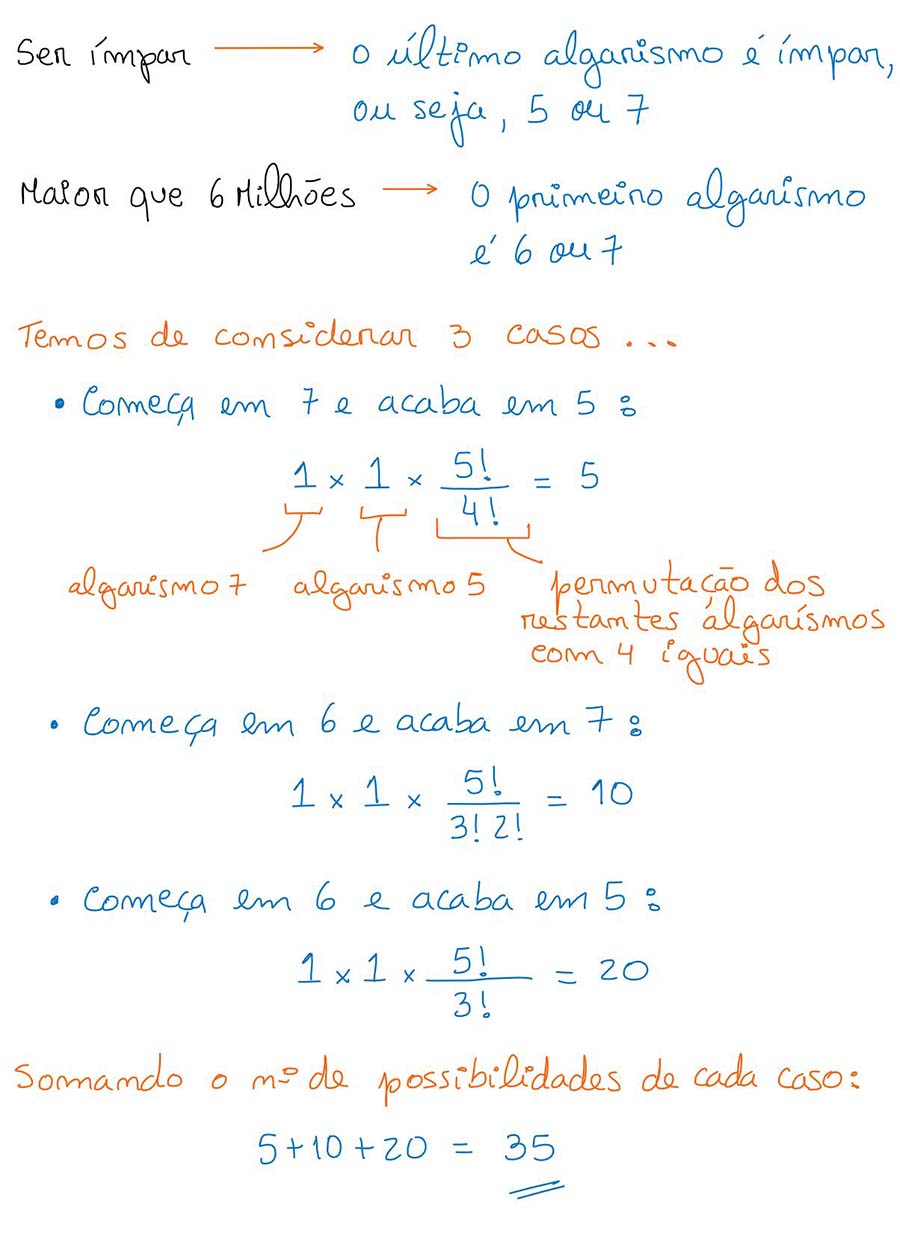 Ser ímpar → O último algarismo é ímpar,
ou seja, 5 ou 7
Maior que 6 Milhões → O primeiro algarismo
é 6 ou 7
Temos de considerar 3 casos ...
• Começa em 7 e acaba em 5 :
1 × 1 × 5!/4! = 5
algarismo 7 algarismo 5 permutação dos
restantes algarísmos
com 4 iguais
• Começa em 6 e acaba em 7 :
1 × 1 × 5!/3! 2! = 10
• Começa em 6 e acaba em 5 :
1 × 1 × 5!/3! = 20
Somando o nº de possibilidades de cada caso:
5+10+20 = 35